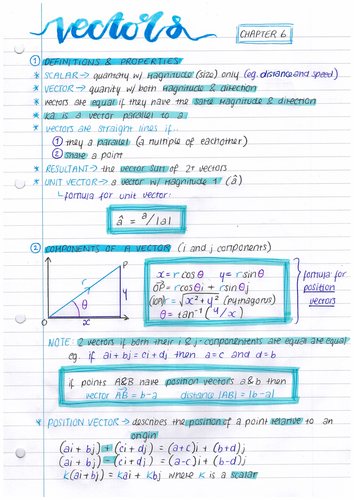 vectors
CHAPTER 6
① DEFINITIONS & PROPERTIES
* SCALAR → quantity w/ magnitude (size) only (eg. distance and speed)
* VECTOR → quanity w/ both magnitude & direction
* vectors are equal if they have the same magnitude & direction
* ka is a vector parallel to a
* vectors are straight lines if...
① they a parallel (a multiple of eachother)
② share a point
* RESULTANT → the vector sum of 2+ vectors
* UNIT VECTOR → a vector w/ magnitude 1 (â)
↳ formula for unit vector:
â = a/|a|
② COMPONENTS OF A VECTOR (i and j components)
P
r
y
θ
O
x
x = r cosθ   y = r sinθ
OP = r cosθi + r sinθj
r = √x² + y² (pythagoras)
θ = tan⁻¹ (y/x)
formula for
position
vectors
NOTE: 2 vectors if both their i & j components are equal are equal
eg. if ai + bj = ci + dj then a = c and d = b
if points A&B have position vectors a & b then
vector AB = b-a   distance |AB| = |b-a|
* POSITION VECTOR → describes the position of a point relative to an
origin
(ai + bj) + (ci + dj) = (a+c)i + (b+d)j
(ai + bj) - (ci + dj) = (a-c)i + (b-d)j
k(ai + bj) = kai + kbj where k is a scalar